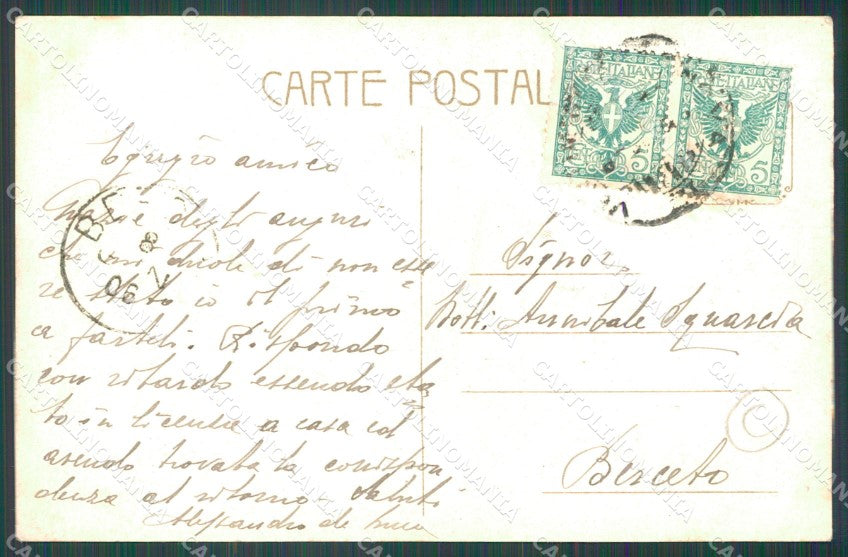 CARTE POSTAL
Egregio amico
Grazie degli auguri
che mi duole di non esse
re stato io il primo
a farteli. Rispondo
con ritardo essendo sta
to in licenza a casa ed
avendo trovata la corrispon
denza al ritorno. Saluti
Alessandro de
Signor
Dott. Annibale Squarcia
Berceto